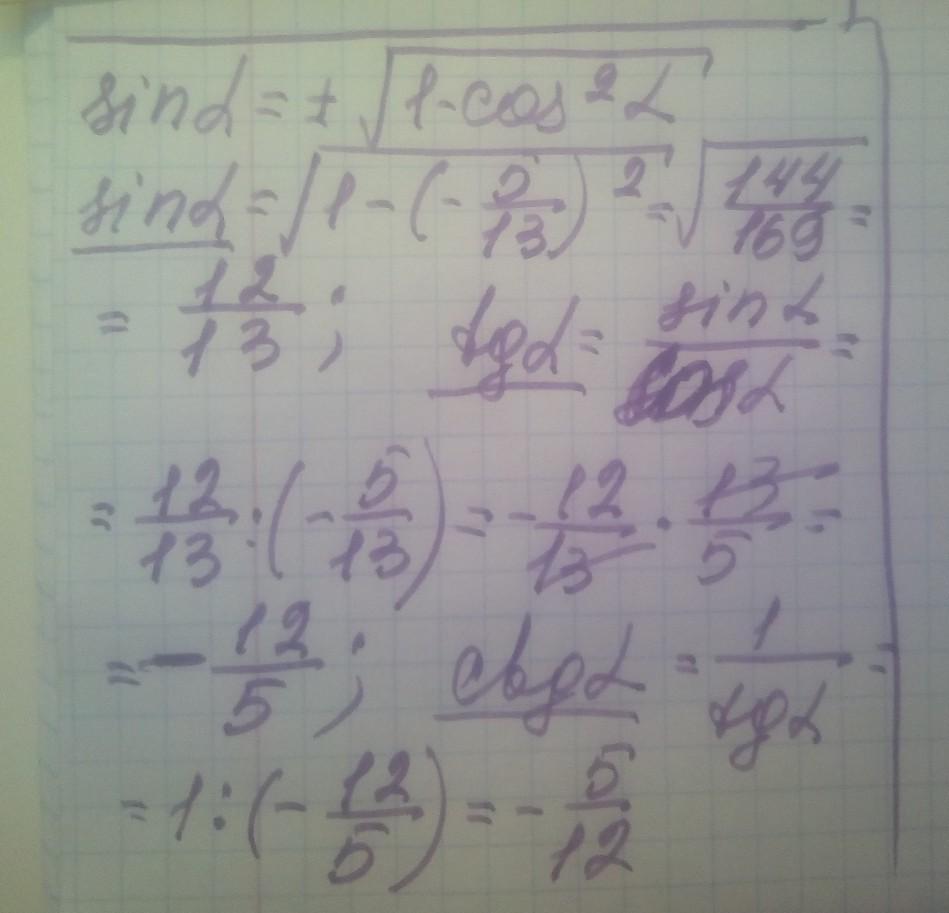 sinα = ± √(1-cos²α)
sinα = √(1-(-5/13)²) = √(144/169) =
= 12/13; tgα = sinα/cosα =
= 12/13 : (-5/13) = -12/13 · 13/5 =
= -12/5; ctgα = 1/tgα =
= 1 : (-12/5) = -5/12